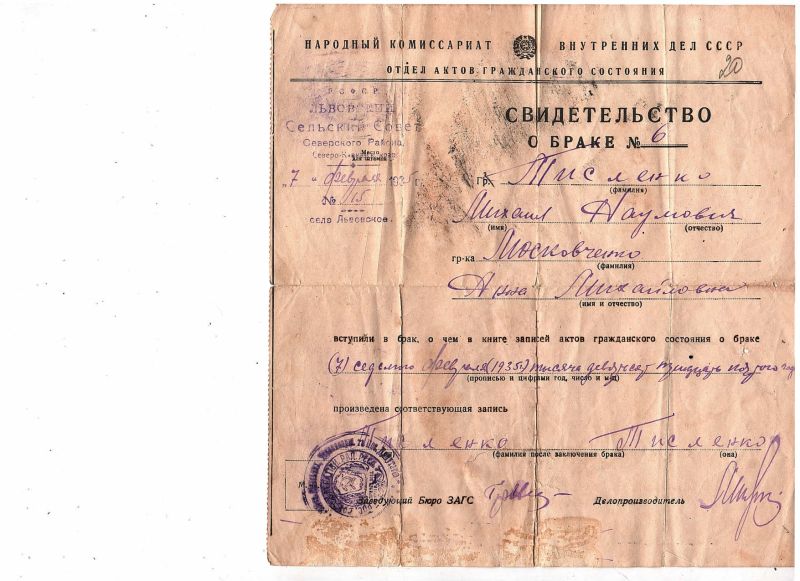 НАРОДНЫЙ КОМИССАРИАТ ВНУТРЕННИХ ДЕЛ СССР
ОТДЕЛ АКТОВ ГРАЖДАНСКОГО СОСТОЯНИЯ
20
РСФСР
ЛЬВОВСКИЙ
Сельский Совет
Северского Района,
Место
для штампа
"7" февраля 1935 г.
№ 15
село Львовское.
СВИДЕТЕЛЬСТВО
О БРАКЕ № 6
гр. Тисленко
(фамилия)
Михаил Наумович
(имя) (отчество)
гр-ка Московченко
(фамилия)
Анна Михайловна
(имя и отчество)
вступили в брак, о чем в книге записей актов гражданского состояния о браке
(7) седьмого февраля (1935г) тысяча девятсот тридцать пятого год
(прописью и цифрами год, число и мец)
произведена соответствующая запись
Тисленко Тисленко
(фамилия после заключения брака) (она)
М
Заведующий Бюро ЗАГС Делопроизводитель